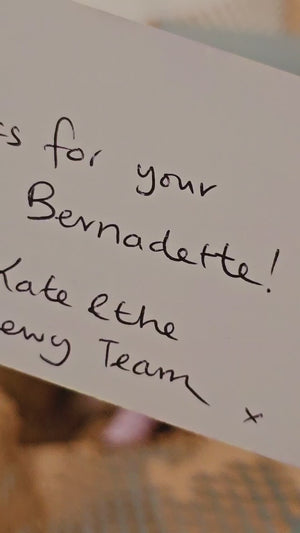 for your
Bernadette!
Kate & the
Team x